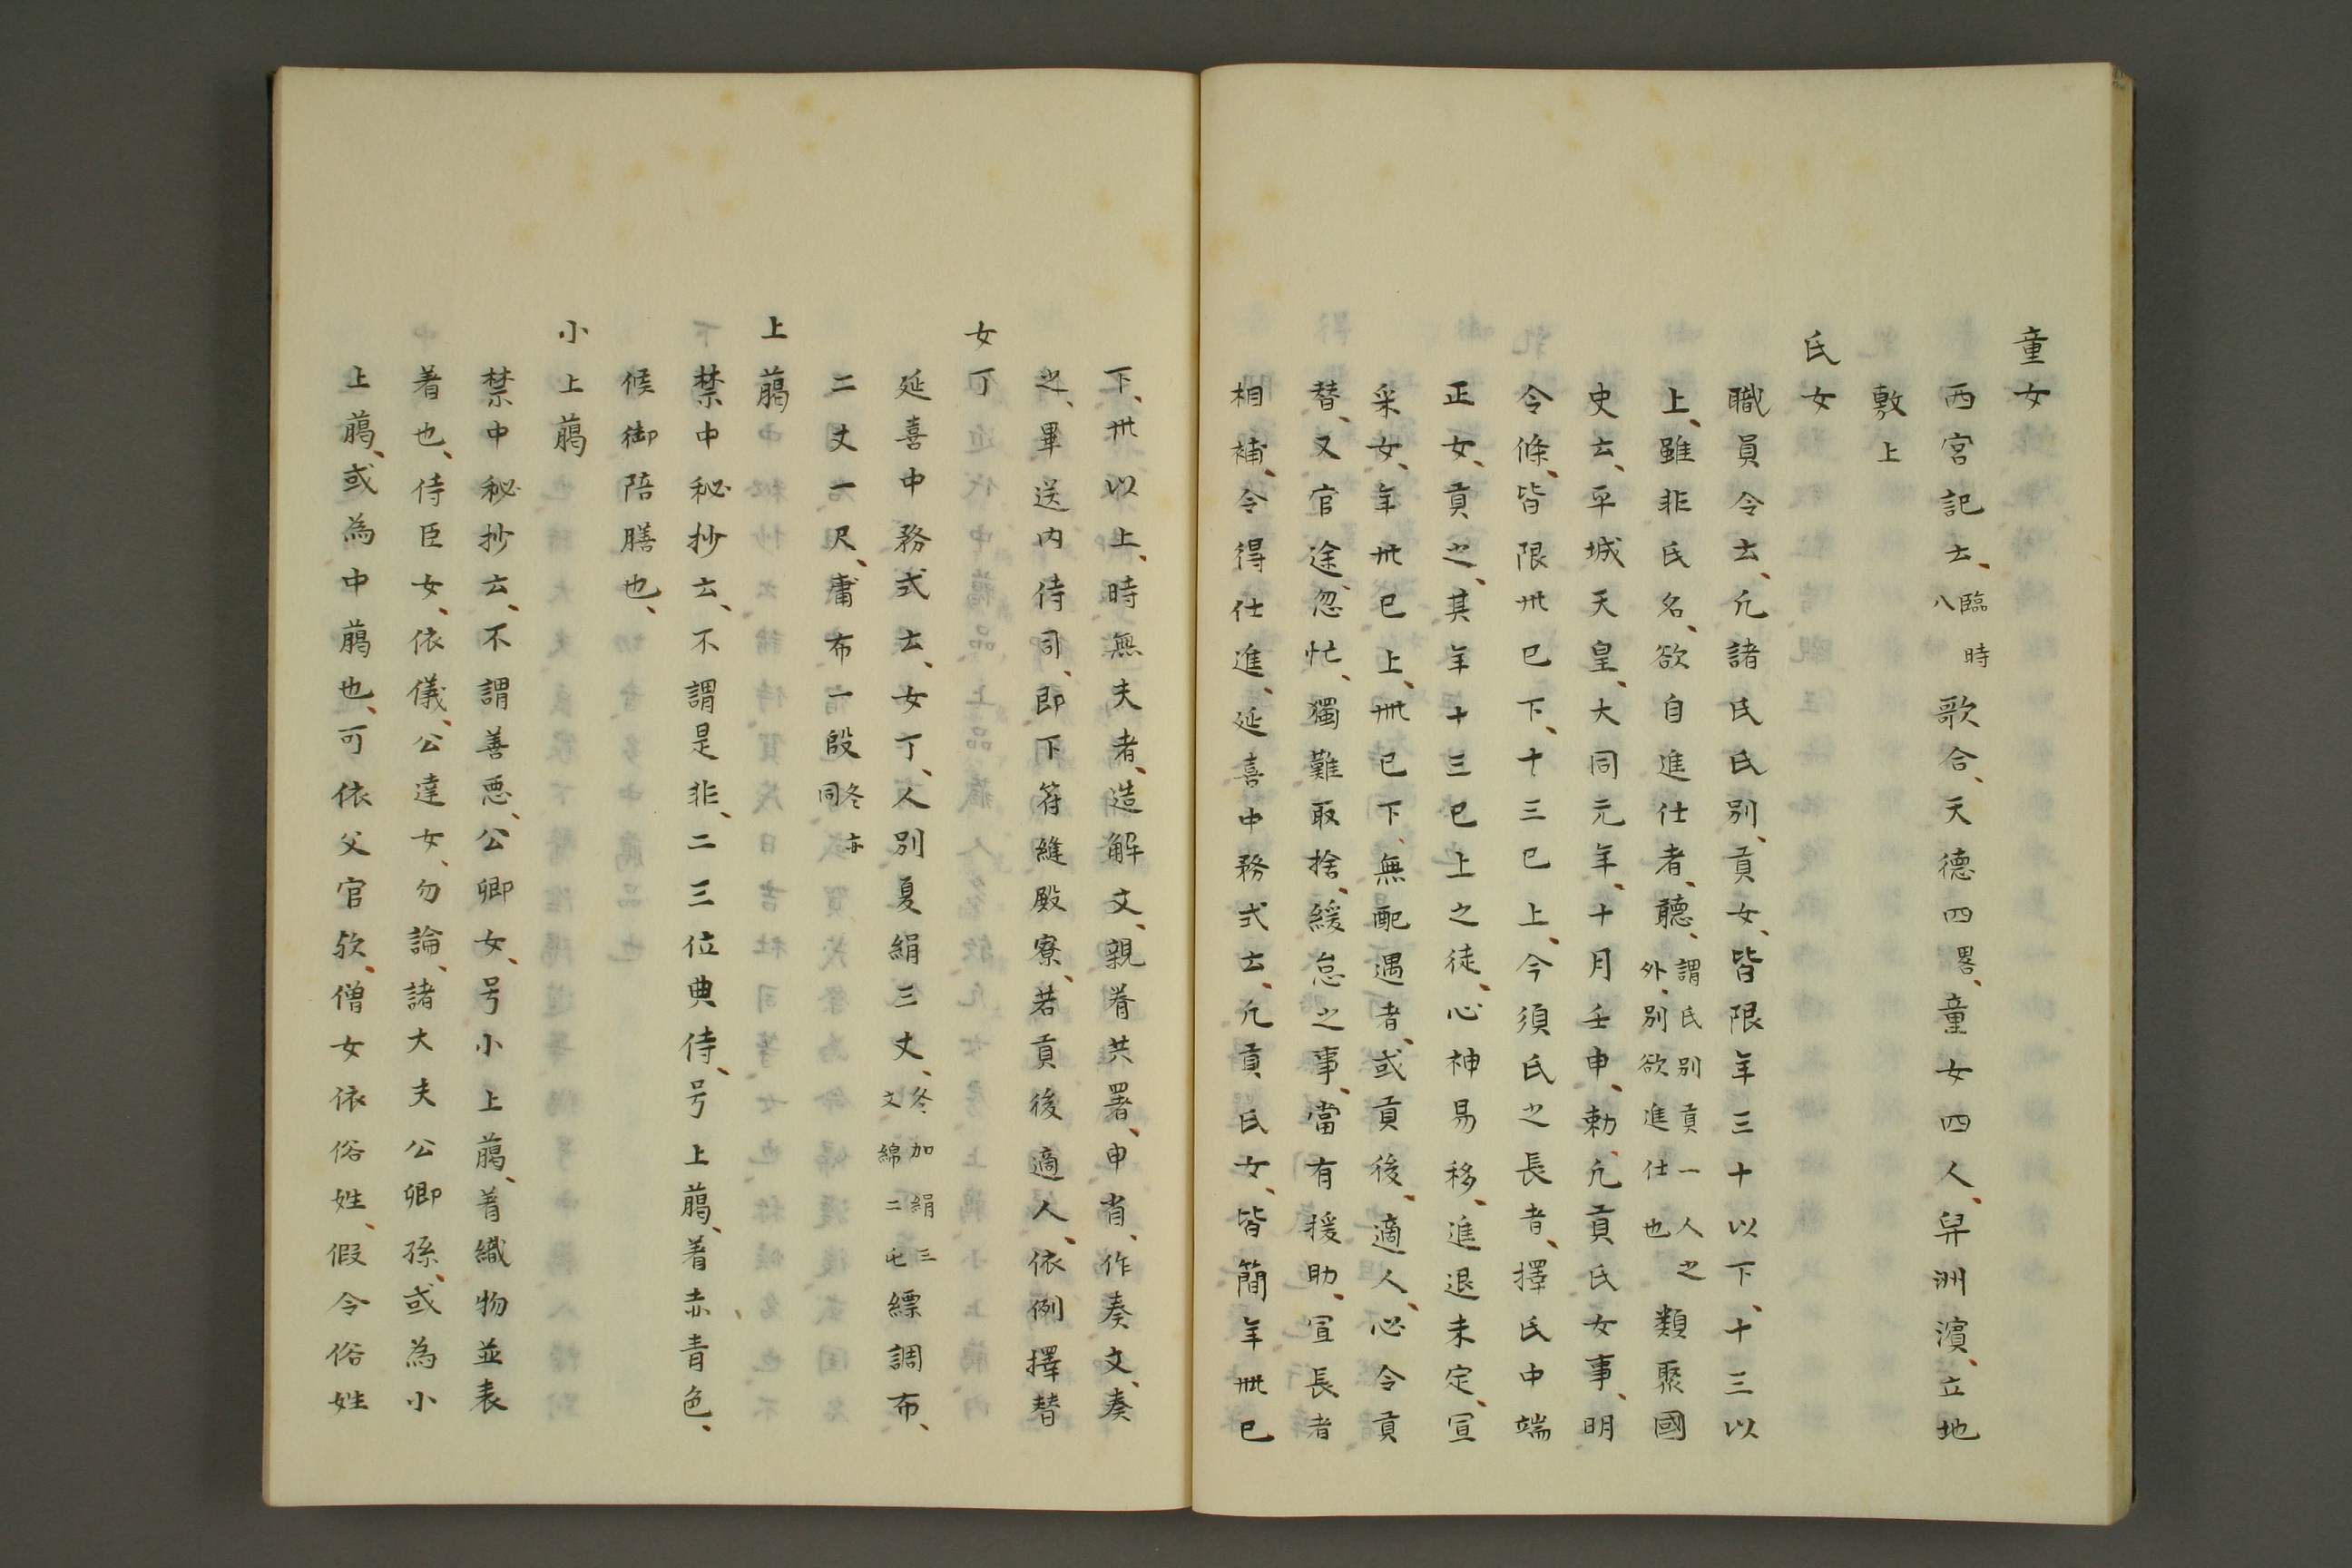 童女
西宮記云、臨時八 歌合、天德四畧、童女四人、舁洲濱、立地
敷上
氏女
職員令云、凢諸氏氏別、貢女、皆限年三十以下、十三以
上、雖非氏名、欲自進仕者、聽、謂氏別貢一人之外、別欲進仕也 類聚國
史云、平城天皇、大同元年、十月壬申、勅、凢貢氏女事、明
令條、皆限卅已下、十三已上、今須氏之長者、擇氏中端
正女、貢之、其年十三已上之徒、心神易移、進退未定、宣
采女、年卅已上、卌已下、無配遇者、或貢後、適人、必令貢
替、又官途忽忙、獨難取捨、緩怠之事、當有援助、宣長者
相補、令得仕進、延喜中務式云、凢貢氏女、皆簡年卌已
下、卅以上、時無夫者、造解文、親眷共署、申省、作奏文、奏
之、畢送内侍司、即下符縫殿寮、若貢後適人、依例擇替
女丁
延喜中務式云、女丁、人別夏絹三丈、冬加絹三丈綿二屯 縹調布、
二丈一尺、庸布一段 冬亦同
上﨟
禁中秘抄云、不謂是非、二三位典侍、号上﨟、着赤青色、
候御陪膳也、
小上﨟
禁中秘抄云、不謂善悪、公卿女、号小上﨟、着織物並表
着也、侍臣女、依儀、公達女、勿論、諸大夫公卿孫、或為小
上﨟、或為中﨟也、可依父官欤、僧女依俗姓、假令俗姓